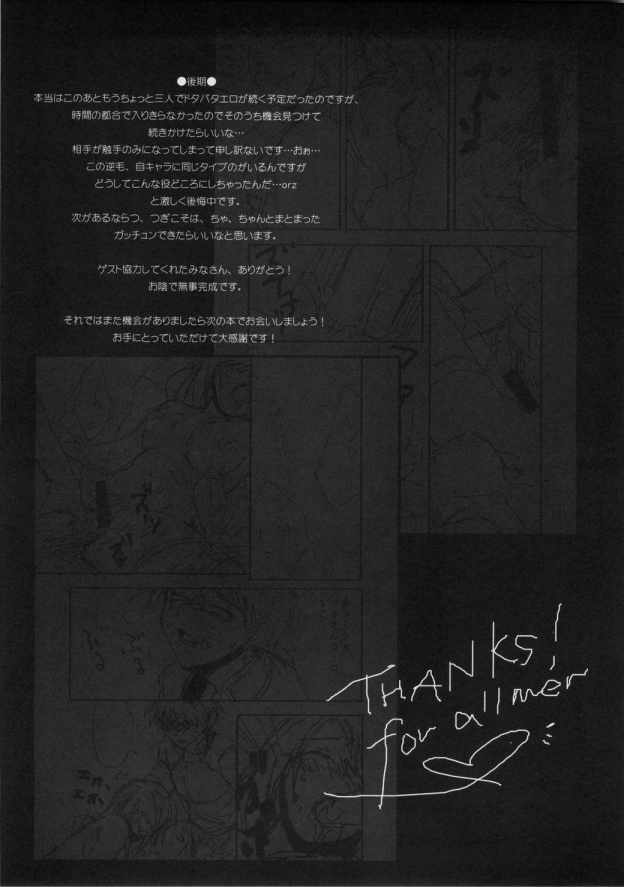 ●後期●
本当はこのあともうちょっと三人でドタバタエロが続く予定だったのですが、
時間の都合で入りきらなかったのでそのうち機会見つけて
続きかけたらいいな…
相手が触手のみになってしまって申し訳ないです…おぉ…
この逆毛、自キャラに同じタイプのがいるんですが
どうしてこんな役どころにしちゃったんだ…orz
と激しく後悔中です。
次があるならつ、つぎこそは、ちゃ、ちゃんとまとまった
ガッチュンできたらいいなと思います。
ゲスト協力してくれたみなさん、ありがとう！
お陰で無事完成です。
それではまた機会がありましたら次の本でお会いしましょう！
お手にとっていただけて大感謝です！
THANKS!
for all mer